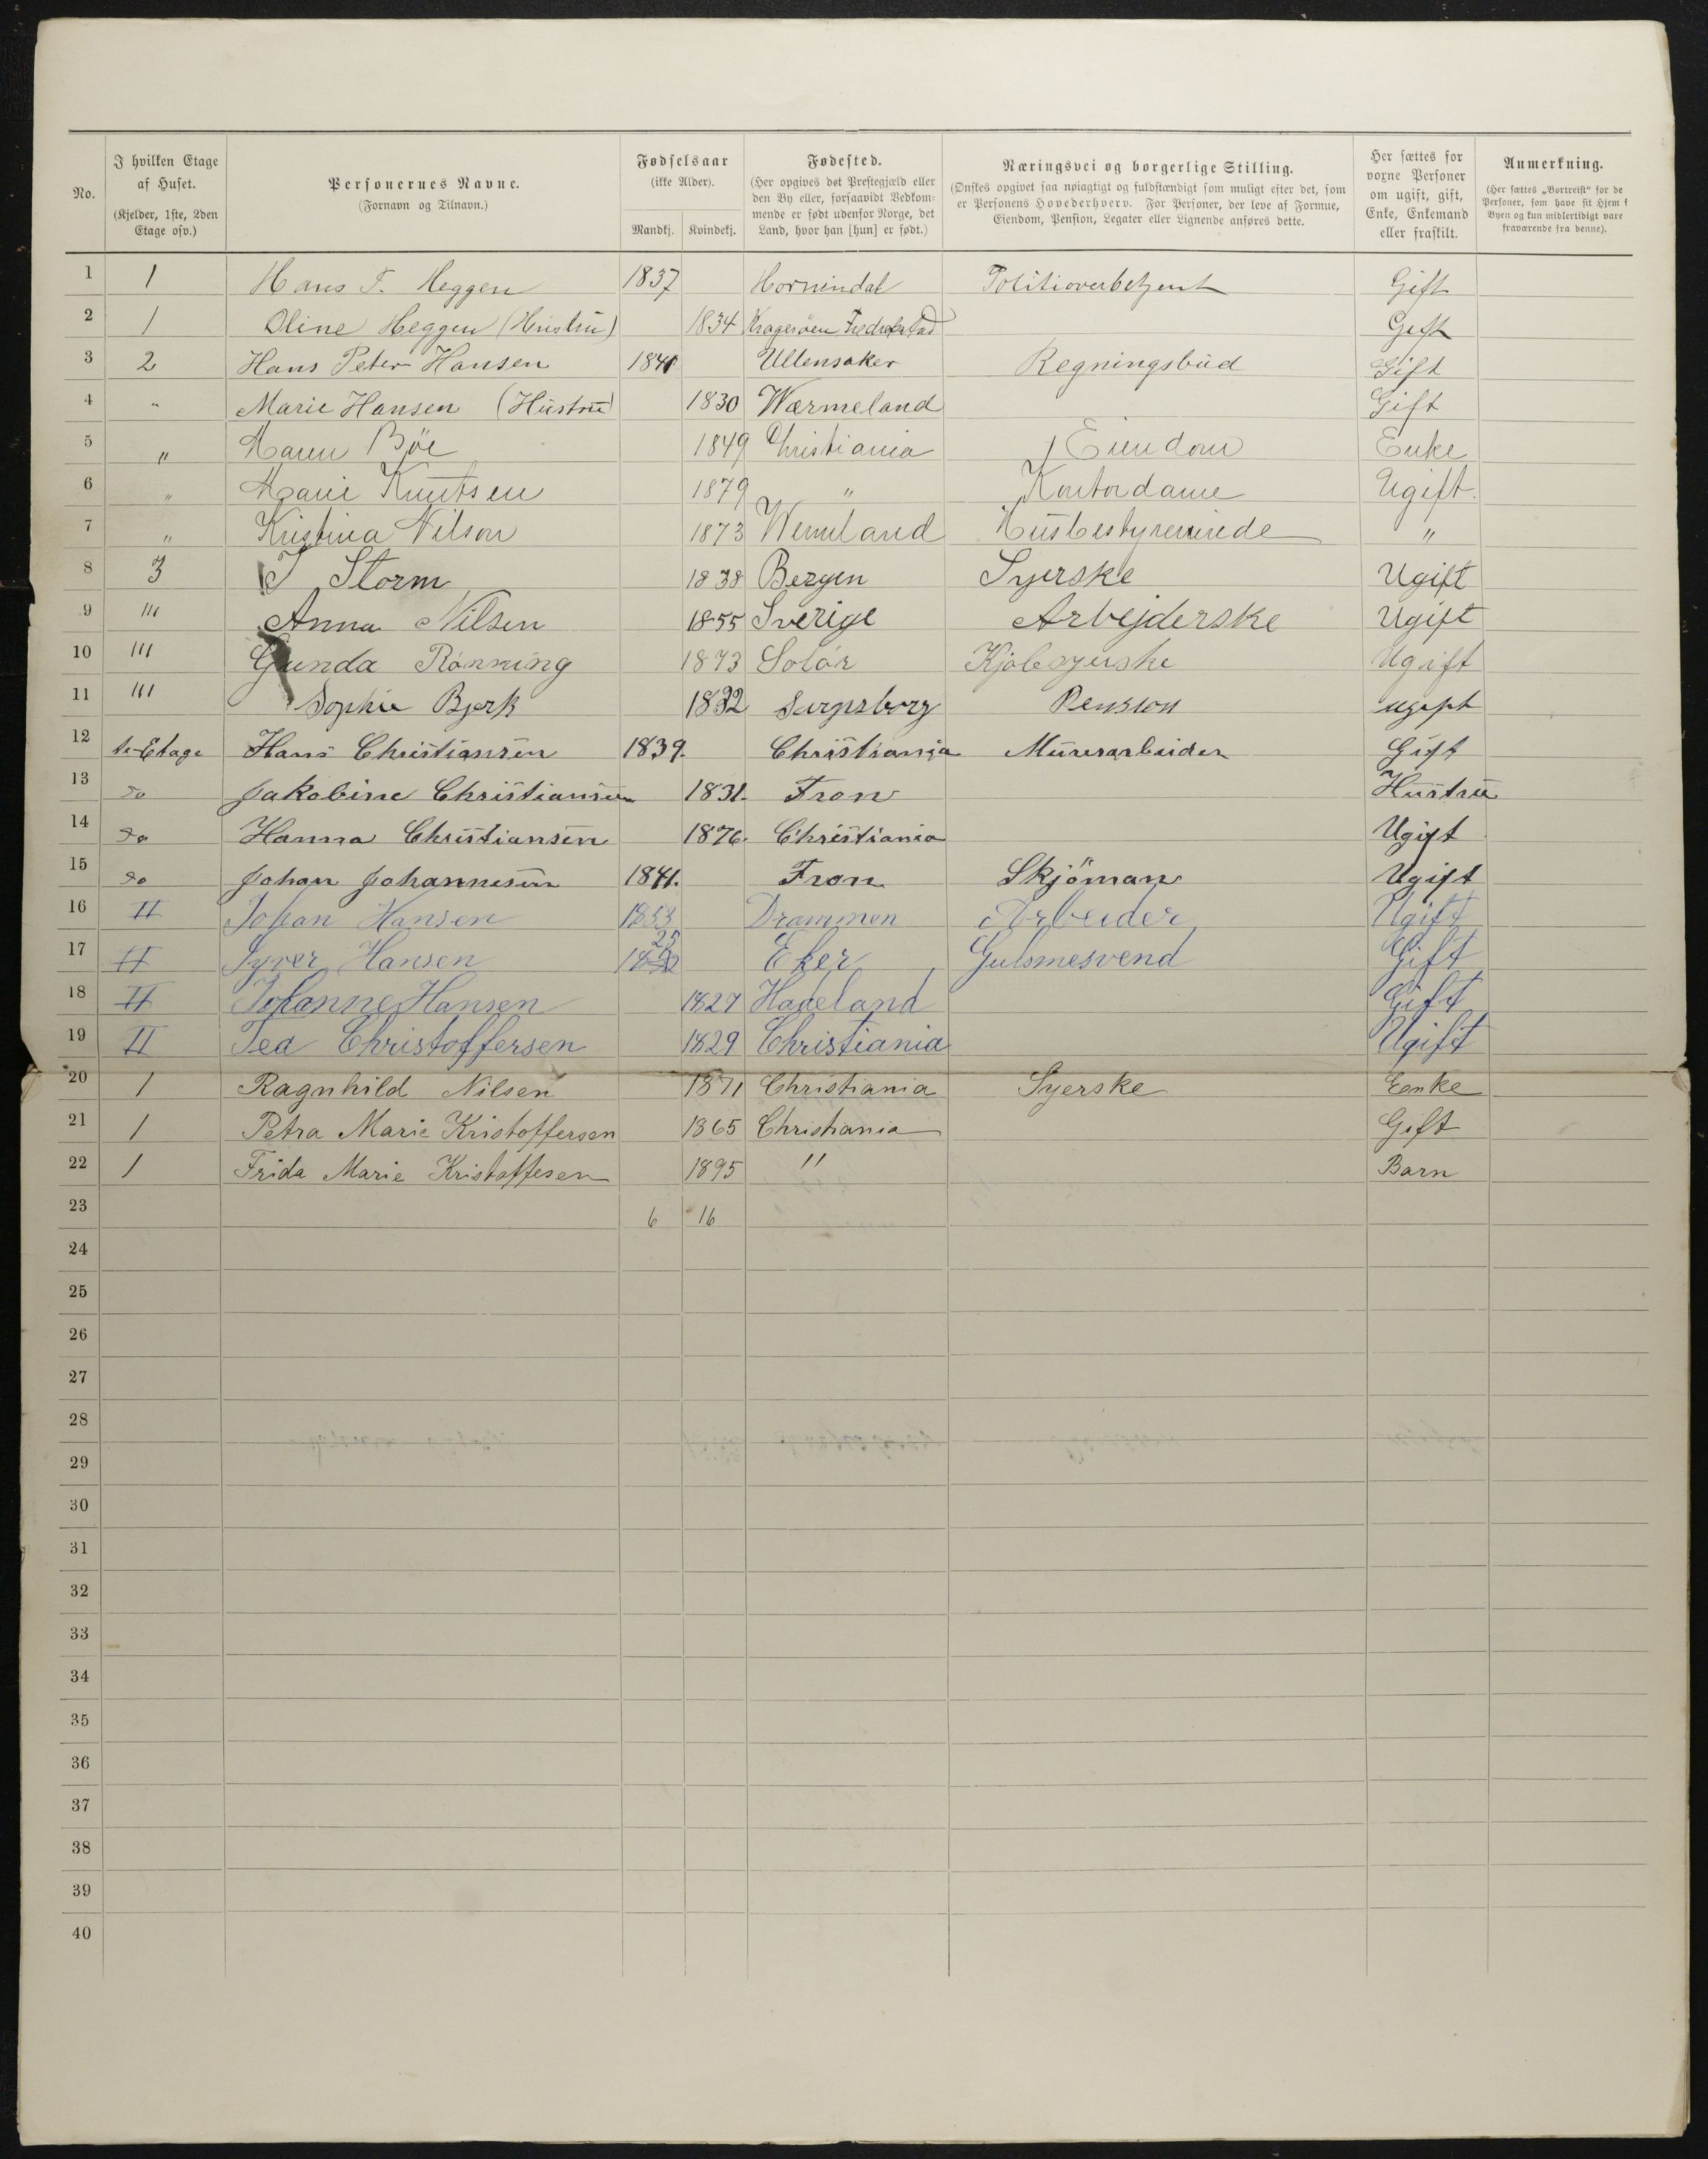 No. | I hvilken Etage af Huset. (Kjelder, 1ste, 2den Etage osv.) | Personernes Navne. (Fornavn og Tilnavn.) | Fødselsaar (ikke Alder). Mandkj. Kvindekj. | Fødested. (Her opgives det Prestegjæld eller den By eller, forsaavidt Vedkommende er født udenfor Norge, det Land, hvor han [hun] er født.) | Næringsvei og borgerlige Stilling. (Ønskes opgivet saa nøiagtigt og fuldstændigt som muligt efter det, som er Personens Hovederhverv. For Personer, der leve af Formue, Eiendom, Pension, Legater eller Lignende anføres dette. | Her sættes for voxne Personer om ugift, gift, Enke, Enkemand eller fraskilt. | Anmerkning. (Her sættes „Bortreist" for de Personer, som have sit Hjem i Byen og kun midlertidigt vare fraværende fra denne).
1 1 Hans F. Heggen 1837 Hornindal Politioverbetjent Gift
2 1 Oline Heggen (Hustru) 1834 Kragerøen Fredrikstad Gift
3 2 Hans Peter Hansen 1841 Ullensaker Regningsbud Gift
4 " Marie Hansen (Hustru) 1830 Wærmeland Gift
5 " Maren Böe 1849 Christiania Eiendom Enke
6 " Marie Knutsen 1879 " Kontordame Ugift.
7 " Kristina Nilson 1873 Wermland Husbestyrerinde "
8 3 J Storm 1838 Bergen Syerske Ugift
9 "' Anna Nilsen 1855 Sverige Arbejderske Ugift
10 "' Gunda Rönning 1873 Solör Kjolesyerske Ugift
11 "' Sophie Bjerk 1832 Sarpsborg Pension ugift
12 1e Etage Hans Christiansen 1839. Christiania Murerarbeider Gift
13 do Jakobine Christiansen 1831. Fron Hustru
14 do Hanna Christiansen 1876. Christiania Ugift
15 do Johan Johannesen 1841. Fron Skjöman Ugift
16 II Johan Hansen 1853 Drammen Arbeider Ugift
17 II Syver Hansen 25 Eker Gulsmesvend Gift
18 II Johanne Hansen 1827 Hadeland Gift
19 II Tea Christoffersen 1829 Christiania Ugift
20 1 Ragnhild Nilsen 1871 Christiania Syerske Enke
21 1 Petra Marie Kristoffersen 1865 Christiania Gift
22 1 Frida Marie Kristoffesen 1895 " Barn
23 6 16
24
25
26
27
28
29
30
31
32
33
34
35
36
37
38
39
40